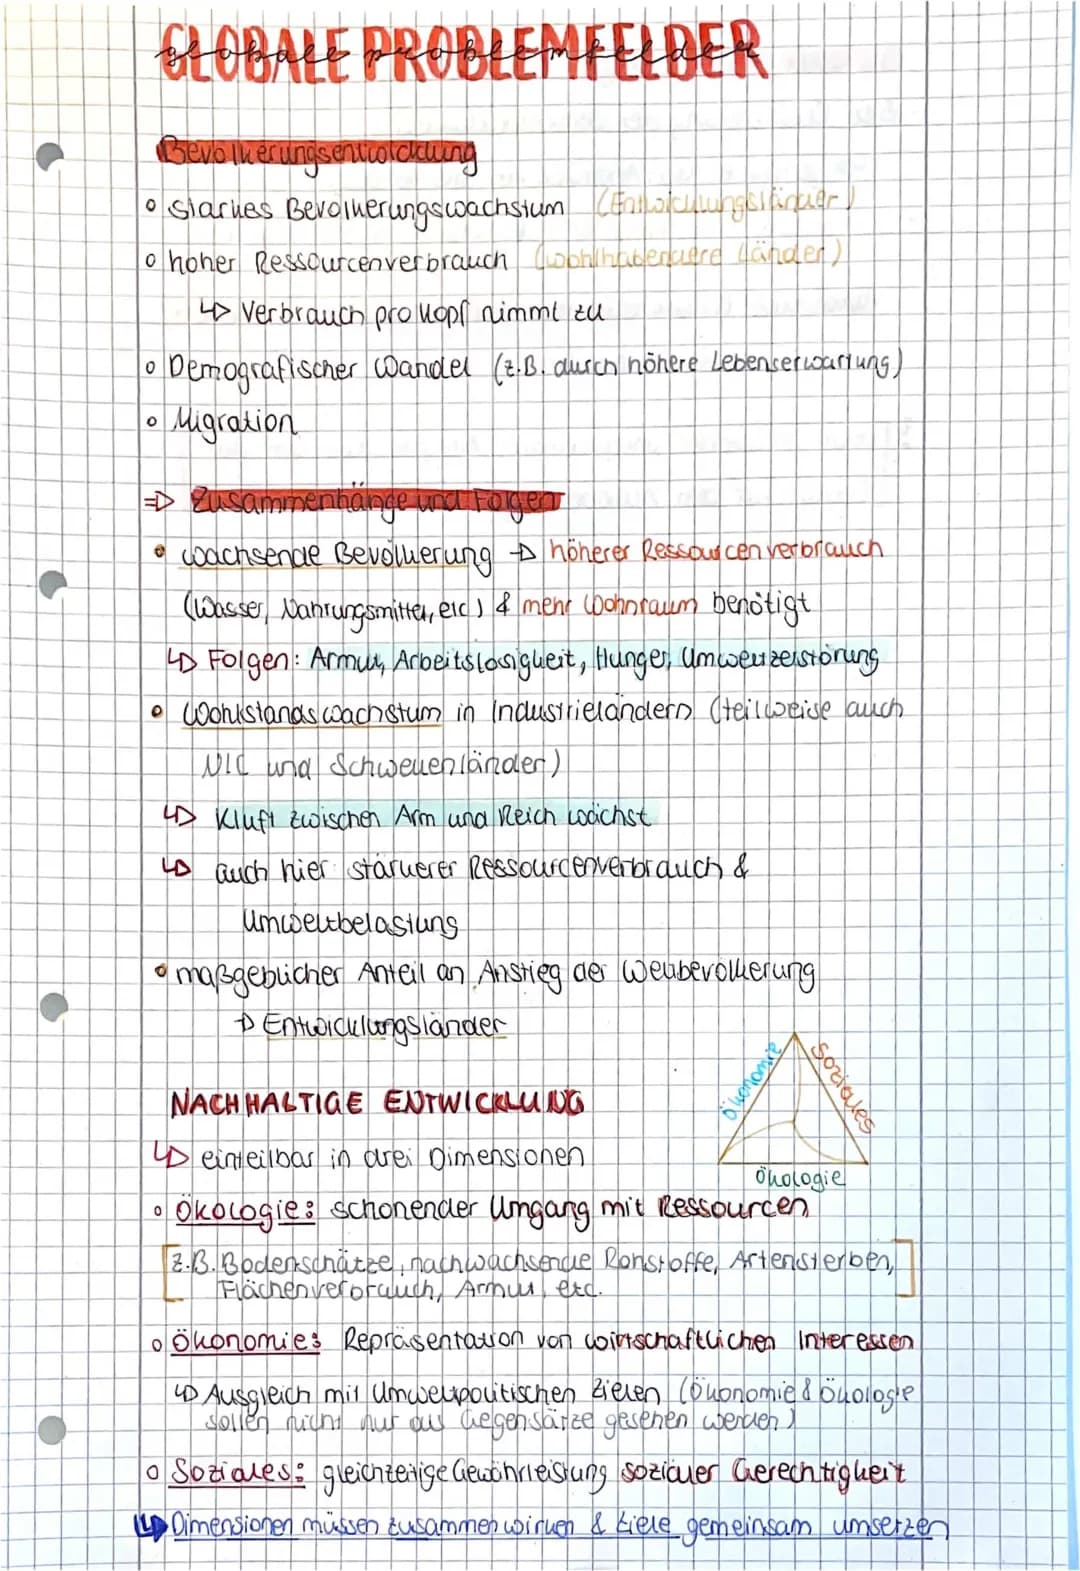 GLOBALE PROBLEMFELDER
globale problemfelder
Bevölkerungsentwicklung
starkes Bevölkerungswachstum (Entwicklungsländer)
hoher Ressourcenverbrauch (wohlhabendere Länder)
↳ Verbrauch pro Kopf nimmt zu
Demografischer Wandel (z.B. durch höhere Lebenserwartung)
Migration
=> Zusammenhänge und Folgen
wachsende Bevölkerung → höherer Ressourcenverbrauch
(Wasser, Nahrungsmittel, etc) & mehr Wohnraum benötigt
↳ Folgen: Armut, Arbeitslosigkeit, Hunger, Umweltzerstörung
Wohlstandswachstum in Industrieländern (teilweise auch
NIC und Schwellenländer)
↳ Kluft zwischen Arm und Reich wächst
↳ auch hier stärkerer Ressourcenverbrauch &
Umweltbelastung
maßgeblicher Anteil an Anstieg der Weltbevölkerung
→ Entwicklungsländer
Ökonomie
Soziales
Ökologie
NACHHALTIGE ENTWICKLUNG
↳ einteilbar in drei Dimensionen
Ökologie: schonender Umgang mit Ressourcen
[z.B. Bodenschätze, nachwachsende Rohstoffe, Artensterben,
Flächenverbrauch, Armut, etc.]
Ökonomie: Repräsentation von wirtschaftlichen Interessen
↳ Ausgleich mit Umweltpolitischen Zielen (Ökonomie & Ökologie
sollen nicht nur als Gegensätze gesehen werden)
Soziales: gleichzeitige Gewährleistung sozialer Gerechtigkeit
↳ Dimensionen müssen zusammen wirken & Ziele gemeinsam umsetzen